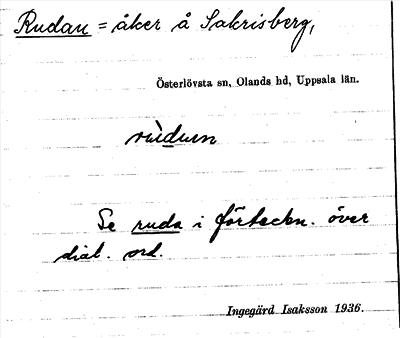 Rudan = åker å Sakrisberg,
Österlövsta sn, Olands hd, Uppsala län.
rùdum
Se ruda i förteckn. över
dial. ord.
Ingegärd Isaksson 1936.